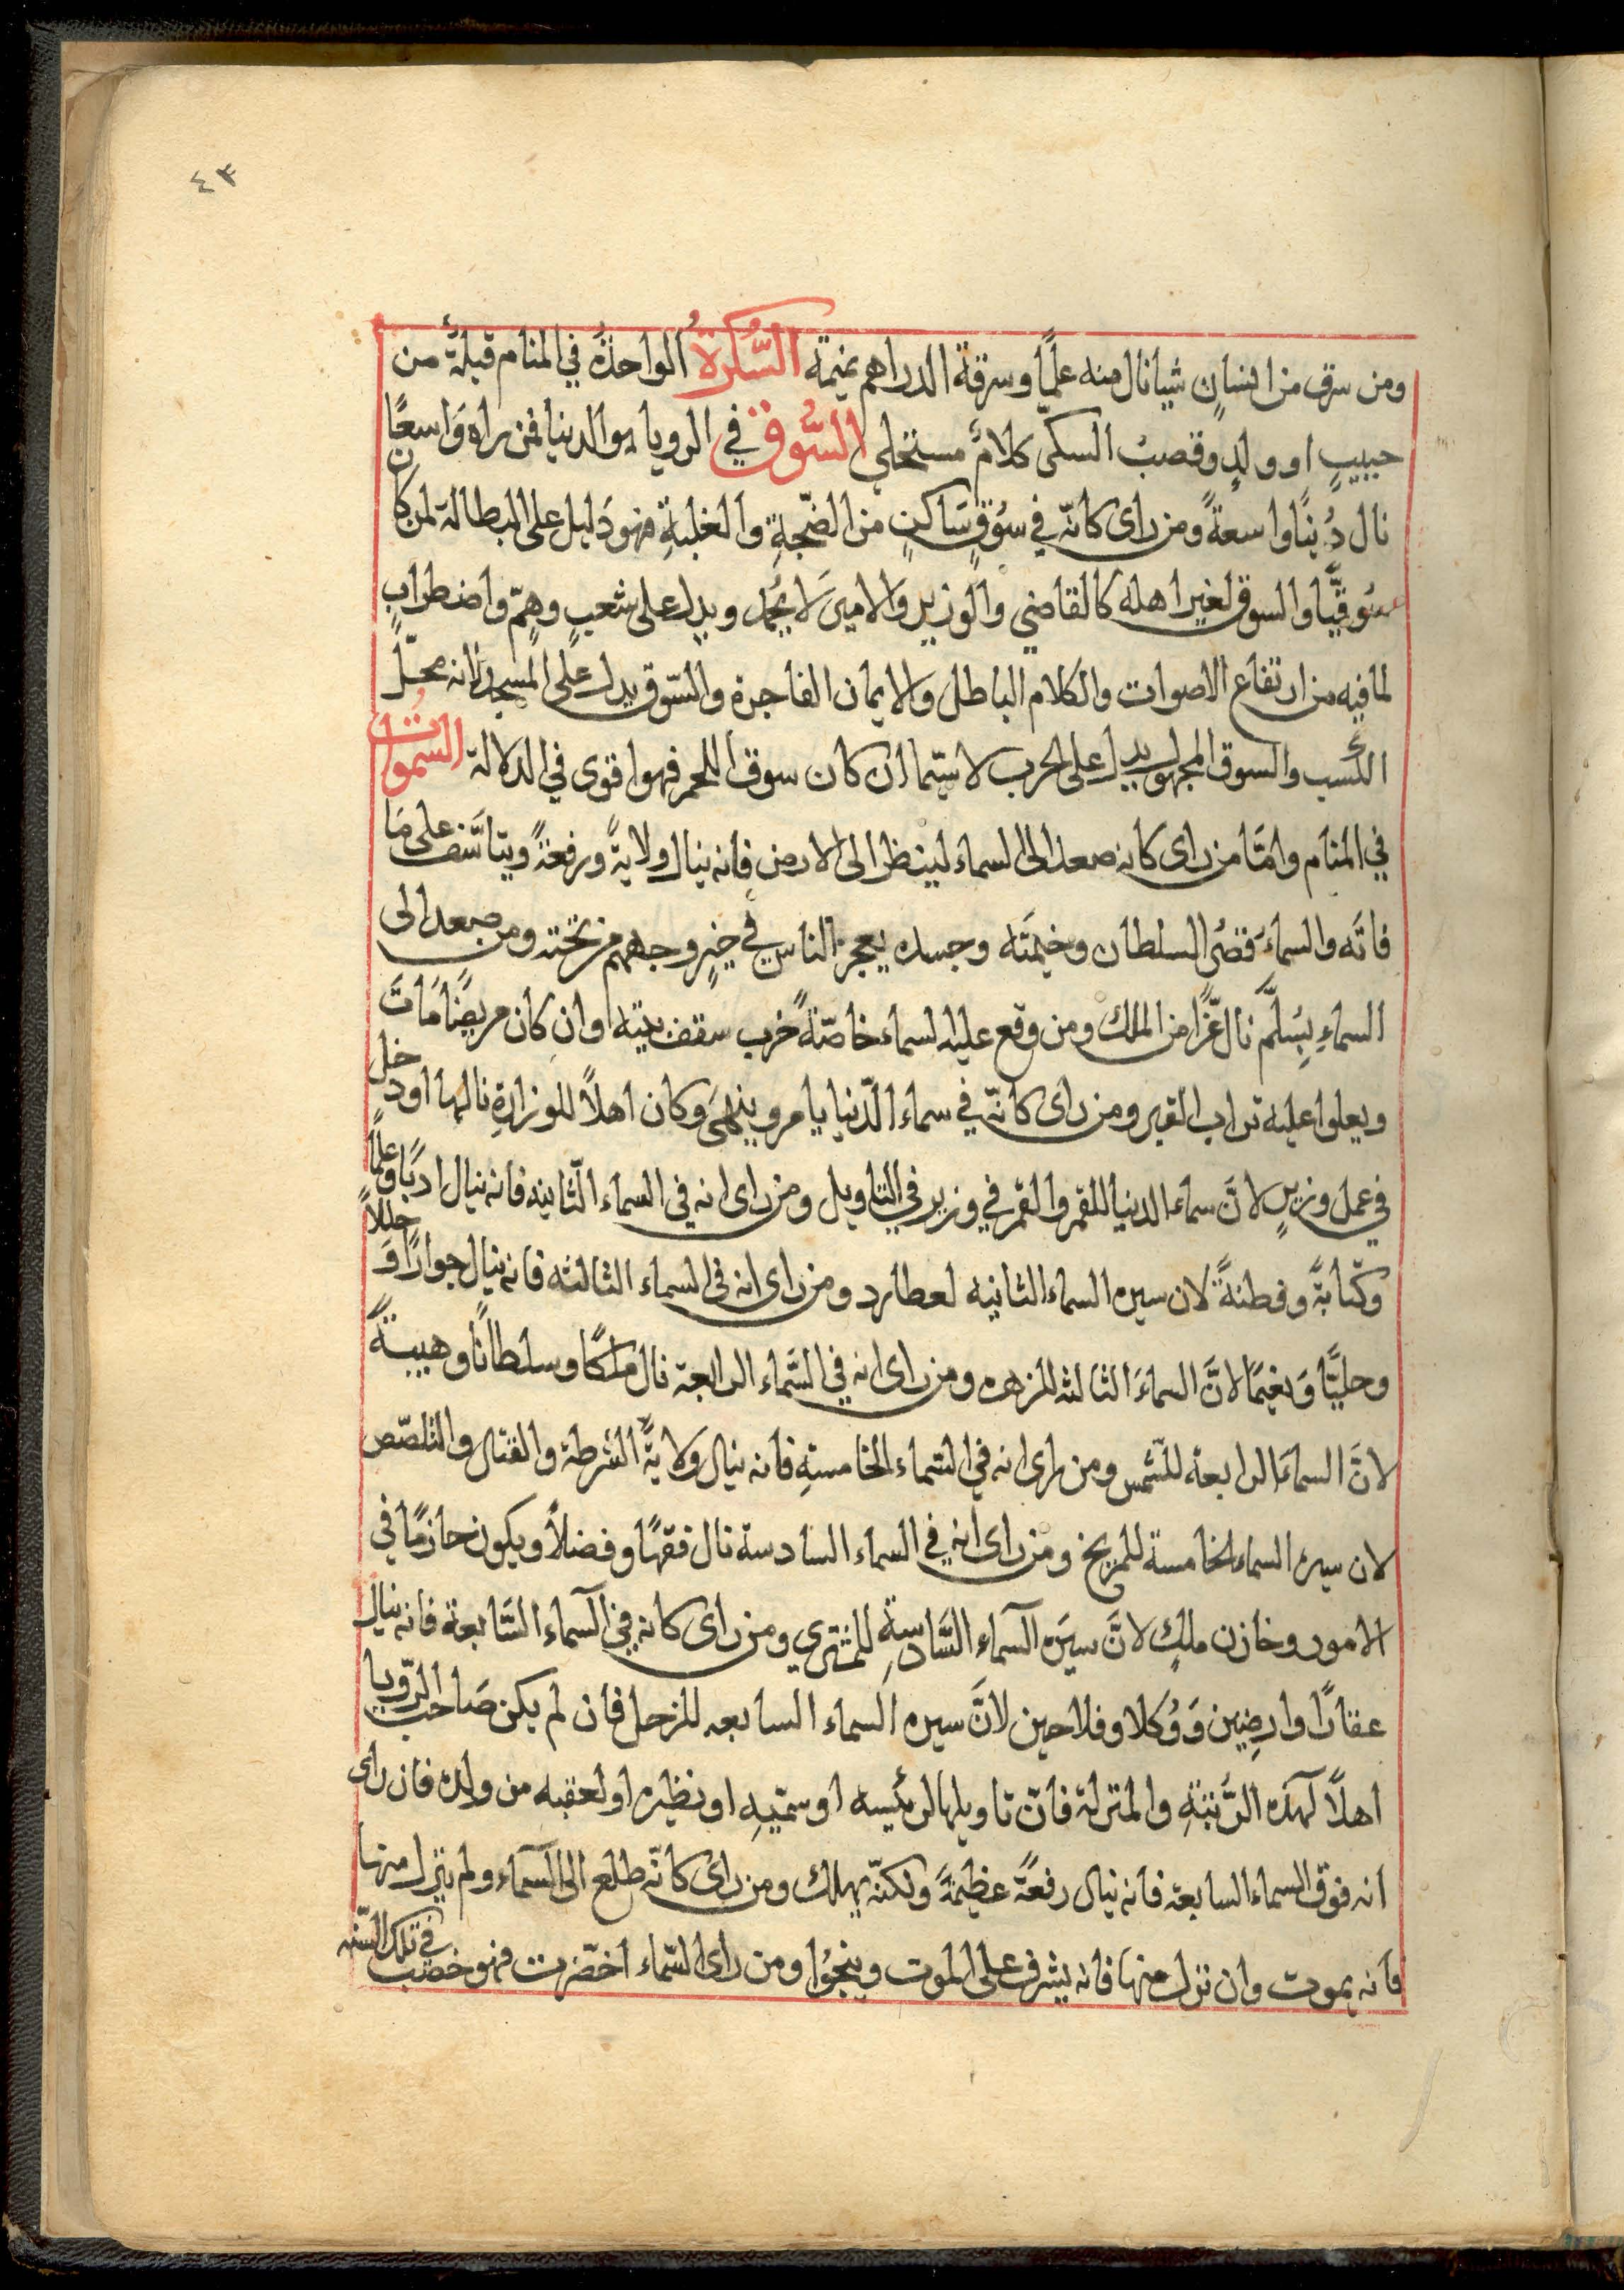 ٤٣
ومن سرق من انسانٍ شيا نال منه علمًا وسرقة الدراهم نميمة السُّكّرةُ الواحدةُ في المنام قبلةٌ من
حبيبٍ او ولدٍ وقصبُ السكّر كلامٌ مستحلى السُّوق في الرويا هو الدنيا فمن راه وَاسعًا
نال دُنيًا واسعةً ومن راى كانّه في سُوقٍ ساكنٍ من الضجّةِ والغلبةِ فهو دَليل على البطالة لمن كان
سُوقيًّا والسوق لغير اهله كالقاضي والوزير والامير لا يُحمد ويدل على شعبٍ وهمٍّ واضطرابٍ
لما فيه من ارتفاع الاصوات والكلام الباطل والايمان الفاجرة والسّوق يدل على المسجد لانه محلّ
الكسب والسوق المجهول يدل على الحرب لا سيّما ان كان سوق اللحم فهو اقوى في الدلالة السموات
في المنام وامّا من راى كانه صعد الى السماء لينظر الى الارض فانه ينال ولايةً ورفعةً ويتاسّف على مَا
فاته والسماءَ قصُر السلطان وخيمَته وجسده يعجز الناس في وجههم من تحته ومن صعد الى
السماءِ بسُلّمٍ نال عزًّا من الملك ومن وقع عليه السماء خاصّةً خرب سقف بيته اوان كان مريضًا مَاتَ
ويعلوا عليه تراب القبر ومن راى كانّه في سماء الدّنيا يامر وينهى وكان اهلاً للوزارةِ نالها او دخل
في عمل وزيرٍ لانَّ سماء الدنيا للقمر والقمر في وزير في التاويل ومن راى انه في السماء الثّانيه فانه ينال ادبًا وعلمًا
وكتابةً وفطنةً لان سيره السماء الثانيه لعطارد ومن راى انه في السماء الثالثه فانه ينال جوارًا وَحليلاً
وحليًّا وَنعيمًا لانَّ السماءَ الثالثه للزهره ومن راى انه في السَّماء الرابعة نال ملكًا وسلطانًا وهيبةً
لانَّ السماءَ الرابعة للشّمس ومن راى انه في السّماء الخامسةِ فانه ينال وَلايةَ الشرطة والقتال والتلصّص
لان سيره السماء الخامسة للمريخ ومن راى انه في السماء السادسة نال فقهًا وفضلاً ويكون حازمًا في
الامور وخازن ملكٍ لانَّ سيَره السّماء السَّادسةِ للمشتري ومن راى كانه في السّماء السَّابعة فانه ينال
عقارًا وارضِين وَوُكلا وفلاحين لانَّ سيره السماء السابعه للزحل فان لم يكن صَاحب الرّويا
اهلاً لهذه الرُّتبَةِ والمنزلة فانّ تاويلها لرئيسه او سمّيهِ او نظيره او لعقبه من ولده فان راى
انه فوق السماء السابعة فانه ينال رفعةً عظيمةً ولكنّه يهلك ومن راى كانّه طلع الى السّماء ولم ينزل منها
فانه يموت وان نزل منها فانه يشرف على الموت وينجوا ومن راى السّماء اخضّرت فهو خصبٌ في تلك السّنه